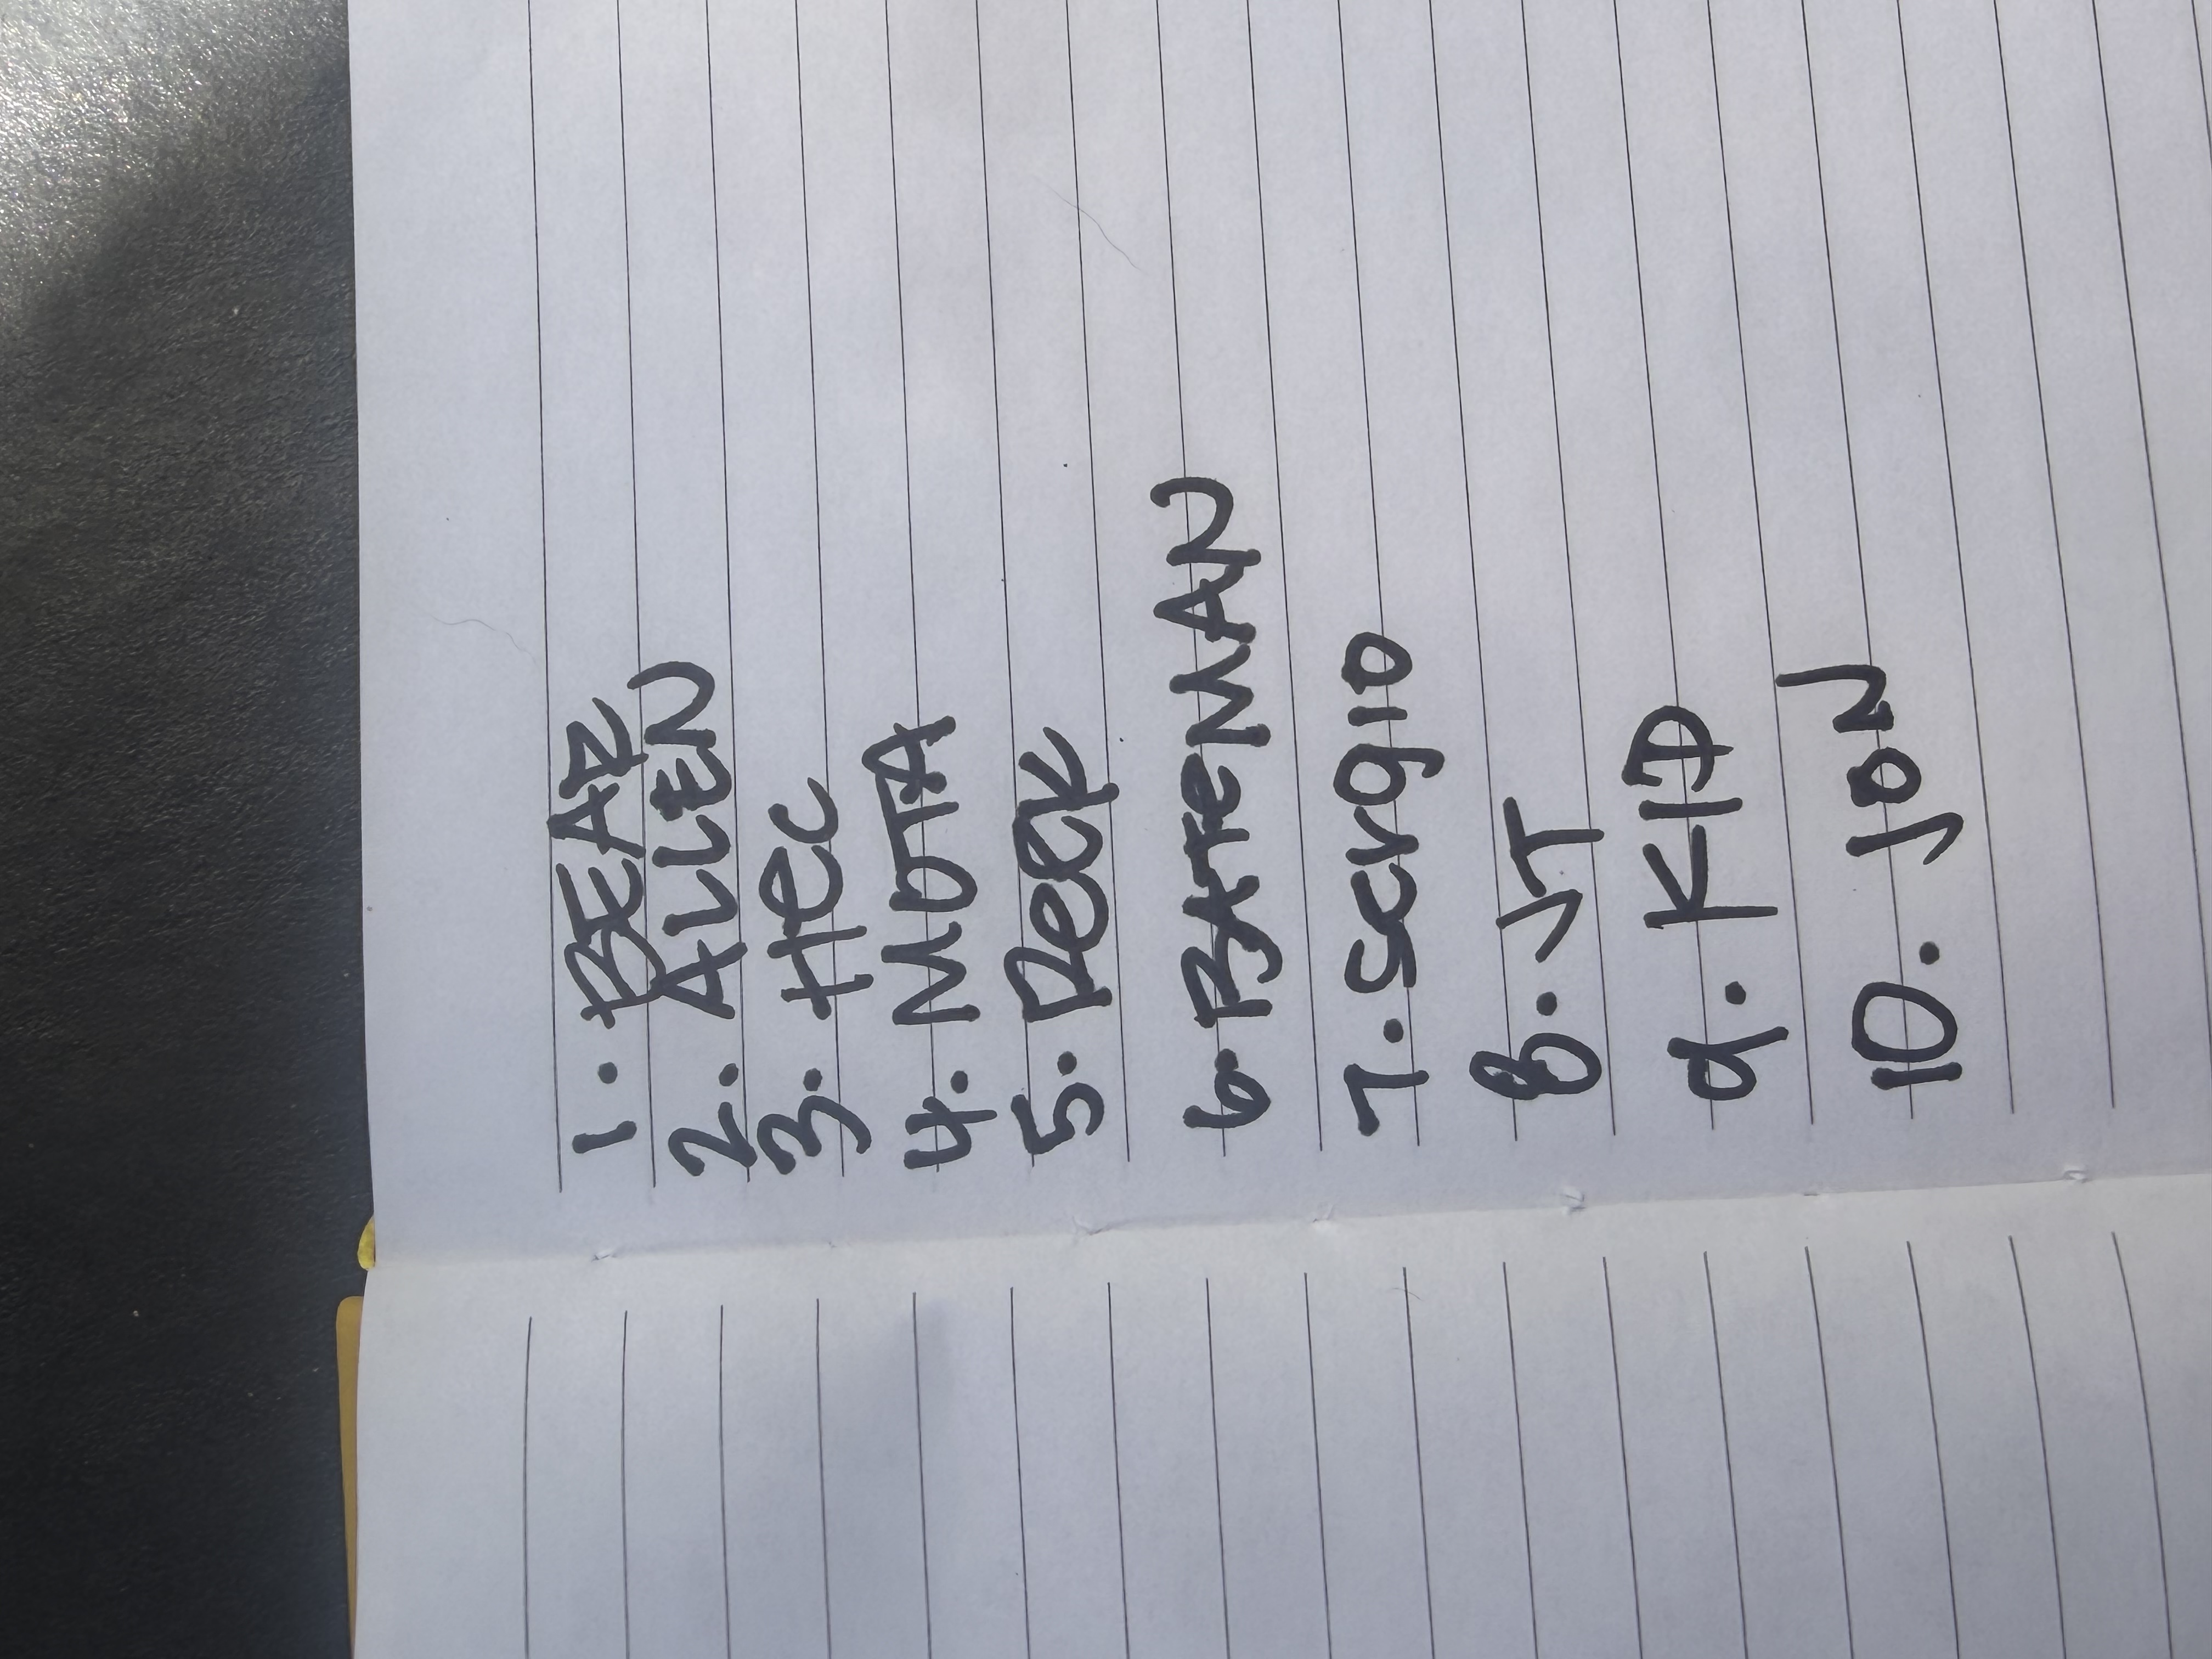 1. BEAR
2. ALLEN
3. HEC
4. MOTA
5. DECK
6. BATEMAN
7. SERGIO
8. JT
9. KID
10. JON